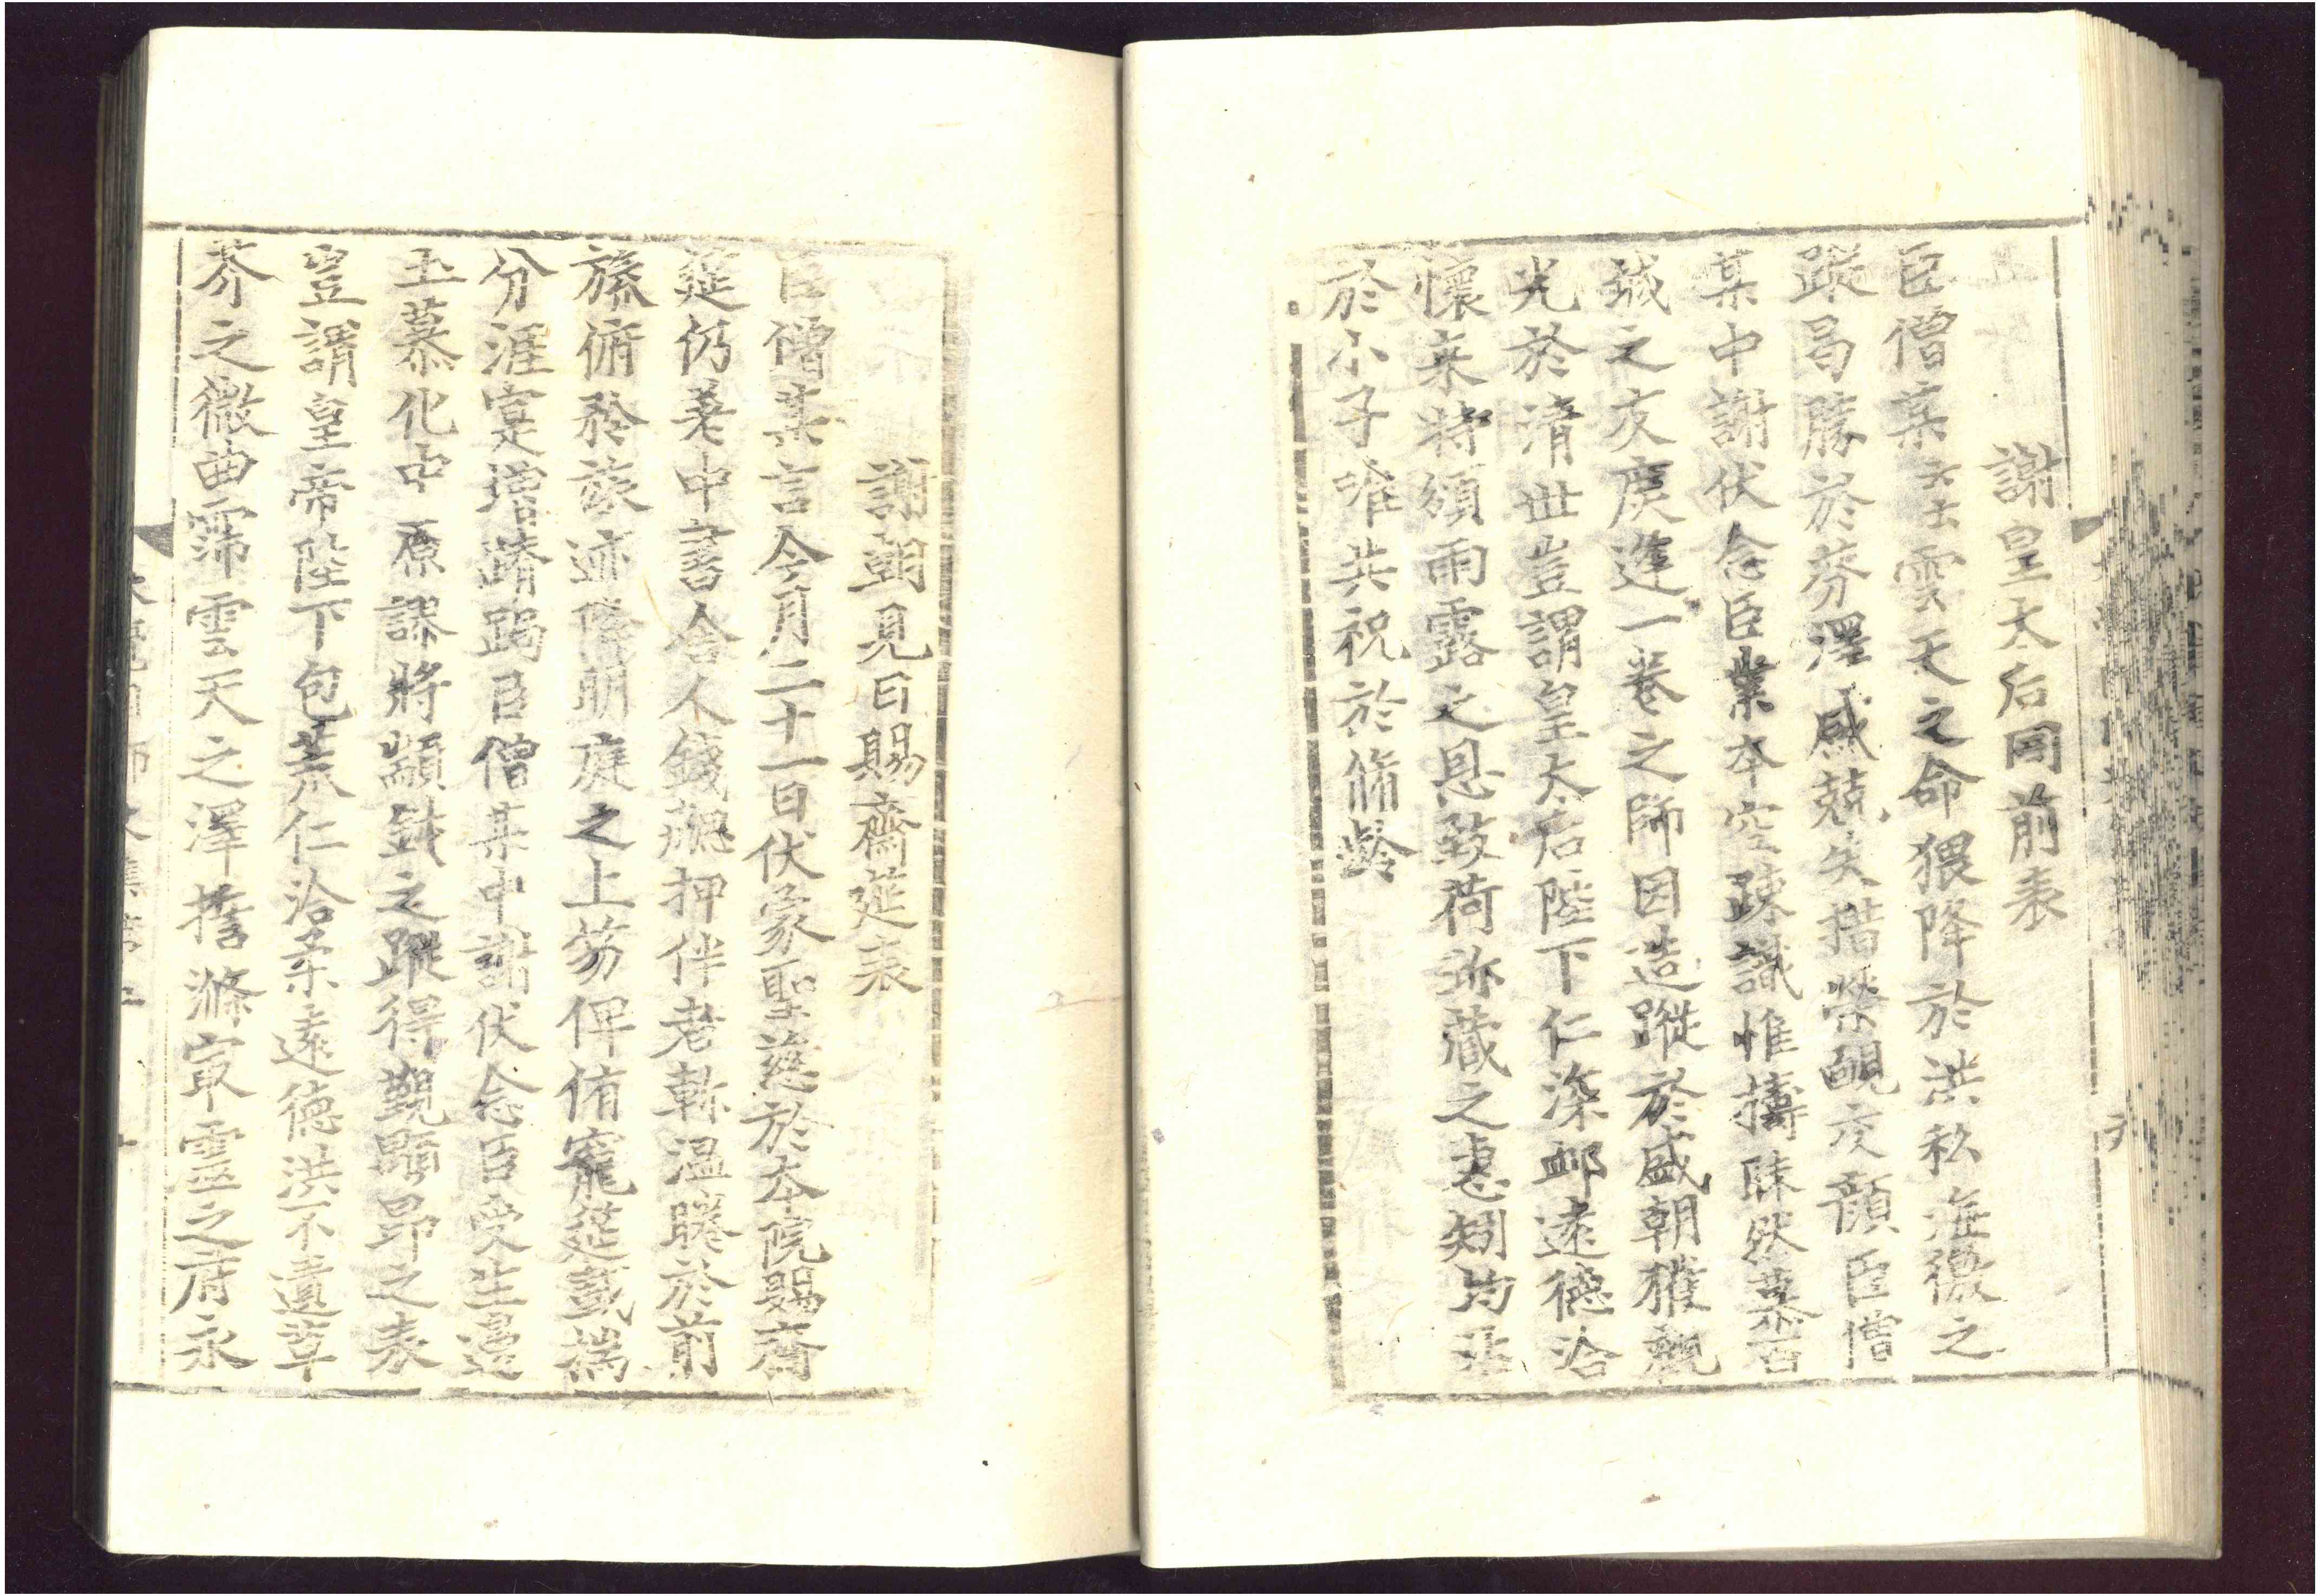 謝皇太后同前表
臣僧某云云雲天之命猥降於洪私海徼之
蹤曷勝於芬澤感兢失措榮靦交顔臣僧
某中謝伏念臣業本空疎識惟擣昧然慕百
城之友庚進一卷之師因造蹤於盛朝獲觀
光於淸世豈謂皇太后陛下仁深邺遠德洽
懷來特頒雨露之恩致荷弥藏之惠矧均
於小子唯共祝於脩齡
謝朝見日賜齋筵表
臣僧某言今月二十一日伏蒙聖慈於本院賜齋
筵仍差中書舍人錢勰押伴者軫溫睠於前
旒俯矜蓀迹隆明庭之上芴俾侑寵筵載揣
分涯寔增蹐跼臣僧某中謝伏念臣受生邊
土慕化中原謬將顓䝉之蹤得觀顒昂之表
豈謂皇帝陛下包荒仁洽柔遠德洪不遺草
芥之微曲霈雲天之澤擔滌㝡靈之府永